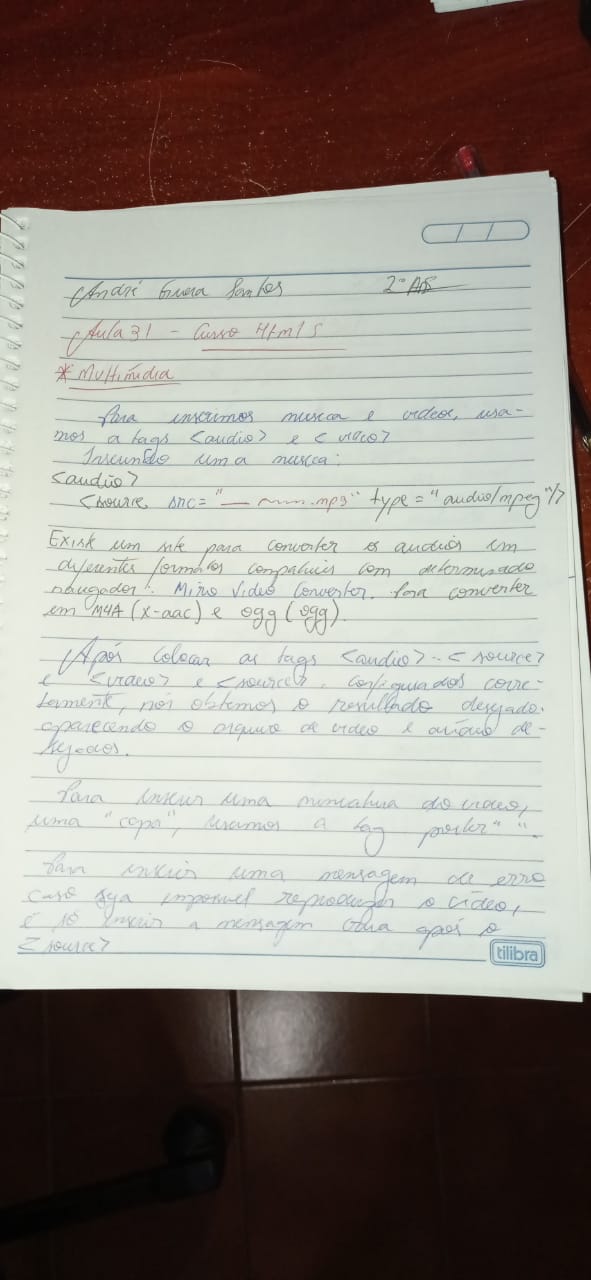 André Guerra Santos 2º AS
Aula 31 - Curso Html 5
* Multimídia
Para inserirmos musica e videos, usa-
mos a tags <audio> e <video>
Inserindo uma musica:
<audio>
<source src="      .mp3" type="audio/mpeg"/>
Existe um site para converter os audios em
diferentes formatos compativeis com determinado
navegador: Miro Video Converter. Para converter
em M4A (x-aac) e ogg (ogg).
Após colocar as tags <audio> - <source>
e <video> e <source>, configurados corre-
tamente, nós obtemos o resultado desejado.
aparecendo o arquivo de video e audio de-
sejados.
Para inserir uma miniatura do video,
uma "capa", usamos a tag poster" ".
Para inserir uma mensagem de erro
caso seja impossivel reproduzir o vídeo,
é só inserir a mensagem após o
<source>
tilibra